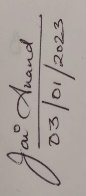 Jai Anand
03/01/2023